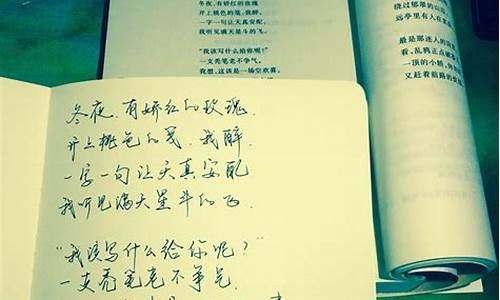 冬夜，有娇红的玫瑰
开上桃色的笺，我醉，
一字一句让天真安配，
我听见满天星斗的飞。
“我该写什么给你呢？”
一支秃笔老不争气，
我想，这该是一场空欢喜，
绕过郁郁的山
远亭里有人在
最是那迷人的
看，乱鸦正点破
一顶的小轿，
又赶着前路的
冬夜，有娇红的玫瑰，
开上桃色的笺，我醉
一字一句让天真安配
我听见满天星斗的飞
“我该写什么给你呢？”
一支秃笔老不争气